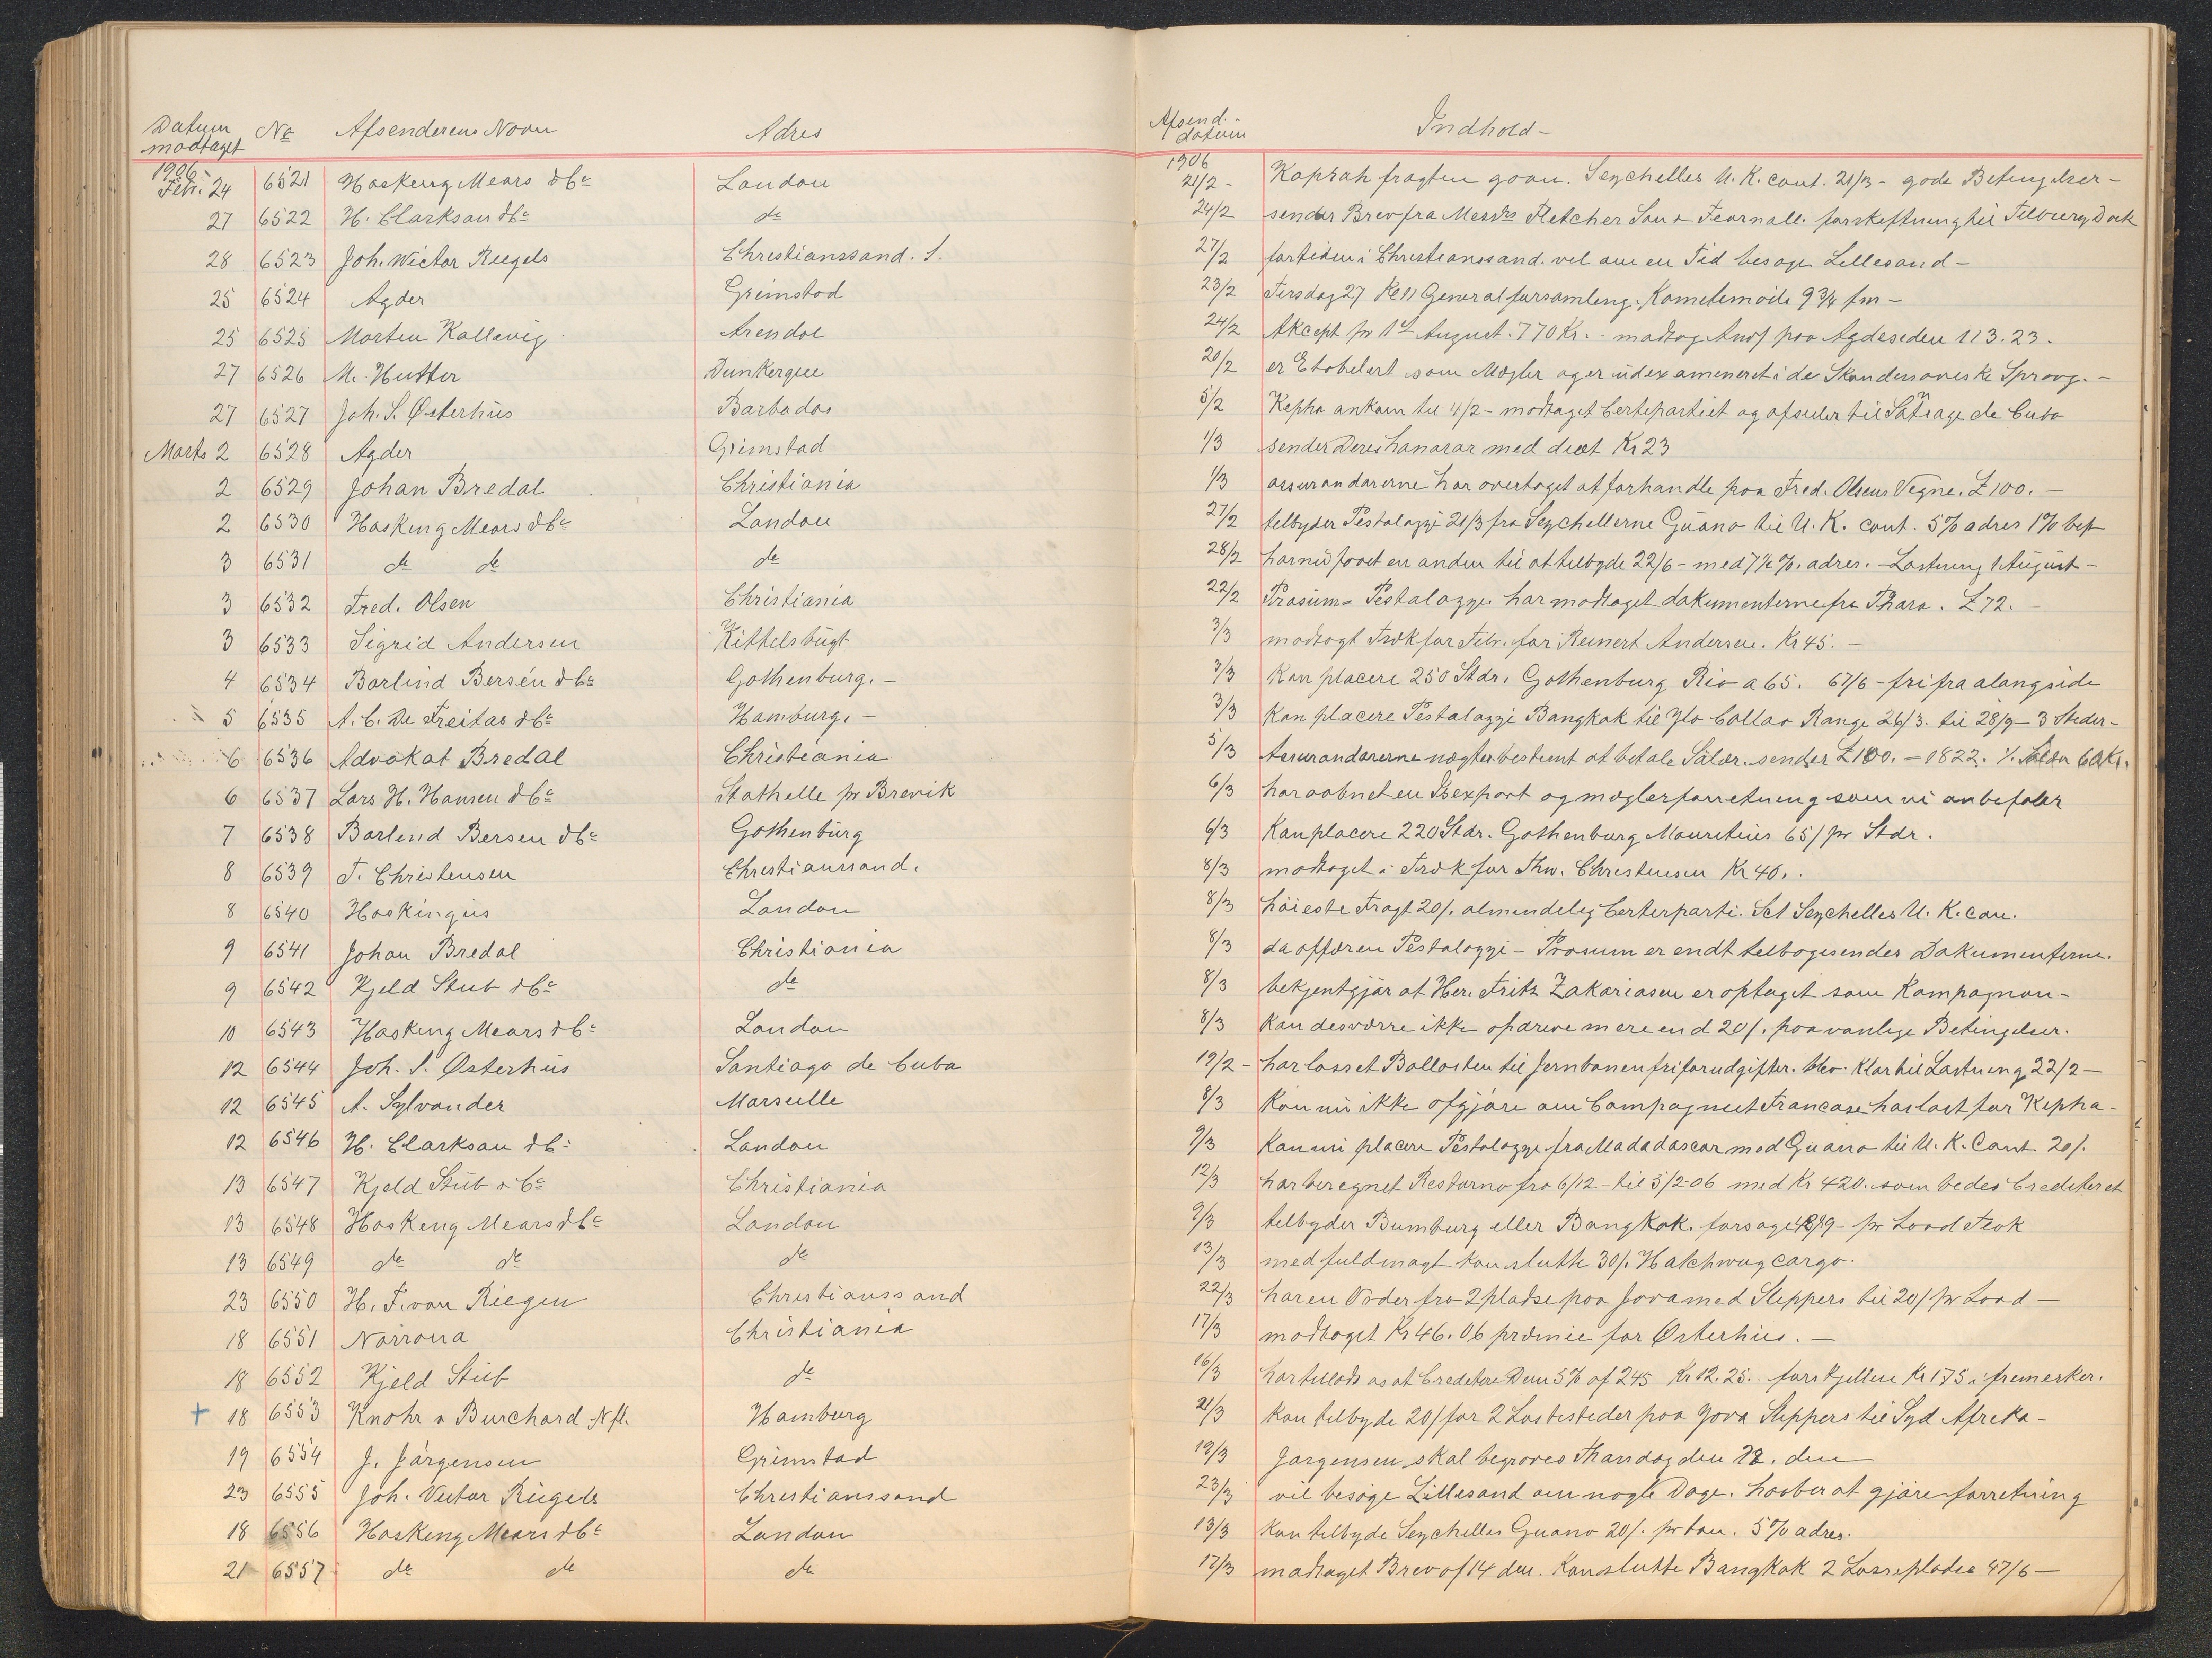 Datum modtaget No Afsenderens Navn Adres Afsend. datum Indhold-
1906- 1906
Febr. 24 6521 Hosking Mears & Co London 21/2- Koprah fragten goan. Seychelles U.K. cont. 21/3- gode Betingelser-
27 6522 H. Clarkson & Co do 24/2 sender Brev fra Messrs Fletcher Son & Fearnall. forskeftning til Tilburg Dock
28 6523 Joh. Wictor Riegels Christianssand. S. 27/2 fortiden i Christianssand. vil om en Tid besøge Lillesand-
25 6524 Agder Grimstad 23/2 Tirsdag 27 Kl 11 Generalforsamling. Kometemøde 9 3/4 fm-
25 6525 Morten Kallevig Arendal 24/2 Akcept pr 1st August. 770 Kr. - modtog Anvs paa Agdesiden 113.23.
27 6526 M. Hutter Dunkerque 20/2 er Etabelert som Mægler og er udexamineret i de Skandinaviske Sprog.-
27 6527 Joh. S. Østerhus Barbados 5/2 Kepha ankom til 4/2- modtaget Certepartiet og afseiler til Satiago de Cuba
Marts 2 6528 Agder Grimstad 1/3 sender Deres honorar med diæt Kr 23
2 6529 Johan Bredal Christiania 1/3 assurandørerne har overtaget at forhandle paa Fred. Olsens Vegne. £100.-
2 6530 Hosking Mears & Co London 27/2 tilbyder Pestalozzi 21/3 fra Seychellerne Guano til U.K. cont. 5% adres 1% bet
3 6531 do do do 28/2 har nu faaet en anden til at tilbyde 22/6- med 7½%. adres.- Lastning 1 August-
3 6532 Fred. Olsen Christiania 22/2 Prosum= Pestalozzi. har modtaget dokumenterne fra Tharo. £72.-
3 6533 Sigrid Andersen Kittelsbugt 3/3 modtagt Træk for Febr. for Reinert Andersen. Kr 45.-
4 6534 Barlind Bersén & Co Gothenburg.- 3/3 Kan placere 250 Stdr. Gothenburg Rio a 65. 67/6- fri fra alongside
5 6535 A.C. De Freitas & Co Hamburg.- 3/3 Kan placere Pestalozzi Bangkok til Ylo Callao Range 26/3. til 28/9- 3 Steder-
6 6536 Advokat Bredal Christiania 5/3 Assurandørerne nægter bestemt at betale Salær. sender £100.- 1822. ./. Salær 60 Kr.
6 6537 Lars H. Hansen & Co Stathelle pr Brevik 6/3 har aabnet en Isexport og mæglerforretning som vi anbefaler
7 6538 Barlind Bersen & Co Gothenburg 6/3 Kan placere 220 Stdr. Gothenburg Mauritius 65/ pr Stdr.
8 6539 T. Christensen Christianssand. 8/3 modtaget i Træk for Thv. Christensen Kr 40.
8 6540 Hoskingus London 8/3 høieste Fragt 20/. almindelig Certerparti. Sct Seychelles U.K. con.
9 6541 Johan Bredal Christiania 8/3 da affæren Pestalozzi- Prosum er endt tilbagesendes Dokumenterne.
9 6542 Kjeld Stub & Co do 8/3 bekjentgjør at Her. Fritz Zakariasen er optaget som Kompagnon-
10 6543 Hosking Mears & Co London 8/3 Kan desværre ikke opdrive mere end 20/. paa vanlige Betingelser.
12 6544 Joh. S. Østerhus Santiago de Cuba 19/2- har losset Ballasten til Jernbanen fri for udgifter. Klar til Lastning 22/2-
12 6545 A. Sylvander Marseille 8/3 Kan nu ikke afgjøre om Compagniet Francase har last for Kepha-
12 6546 H. Clarkson & Co London 9/3 Kan nu placere Pestalozzi fra Madadascar med Guano til U.K. Cont 20/.
13 6547 Kjeld Stub & Co Christiania 12/3 har beregnet Restorno fra 6/12- til 5/2-06 med Kr 420. som bedes Crediteret
13 6548 Hosking Mears & Co London 9/3 tilbyder Bumburg eller Bangkok. forsøge 48/9- pr Load Teak
13 6549 do do do 13/3 med fuldmagt kan slutte 30/. Hatchway cargo.
23 6550 H. F. van Riegen Christianssand 22/3 har en Order fra 2 pladse paa Java med Sleppers til 20/ pr Load-
18 6551 Norrøna Christiania 17/3 modtaget Kr 46.06 præmie for Østerhus.-
18 6552 Kjeld Stub do 16/3 har tillodt os at Creditere Dem 5% af 245 Kr 12.25. forskjellen Kr 1.75 i frimerker.
+ 18 6553 Knohr & Burchard Nfl. Hamburg 21/3 Kan tilbyde 20/ for 2 Lastesteder paa Java Sleppers til Syd Afrika-
19 6554 J. Jørgensen Grimstad 19/3 Jørgensen skal begraves Thorsdag den 22. den
23 6555 Joh. Victor Riegels Christianssand 23/3 vil besøge Lillesand om nogle Dage. haaber at gjøre forretning
18 6556 Hosking Mears & Co London 13/3 Kan tilbyde Seychelles Guano 20/. pr ton. 5% adres.
21 6557 do do do 17/3 modtaget Brev af 14 den. Kan slutte Bangkok 2 Lossepladse 47/6-